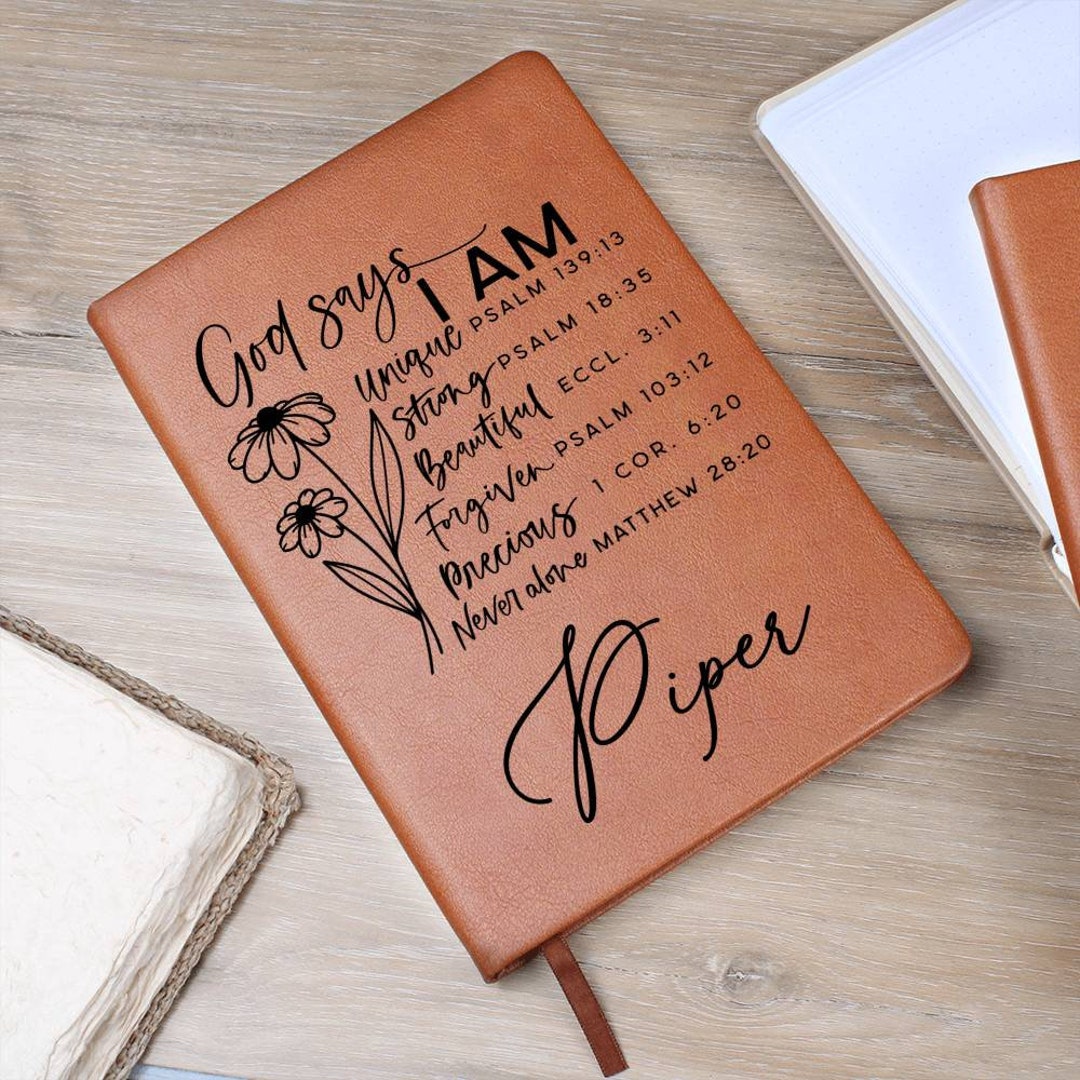 God says
I AM
Unique PSALM 139:13
Strong PSALM 18:35
Beautiful ECCL. 3:11
Forgiven PSALM 103:12
Precious 1 COR. 6:20
Never alone MATTHEW 28:20
Piper